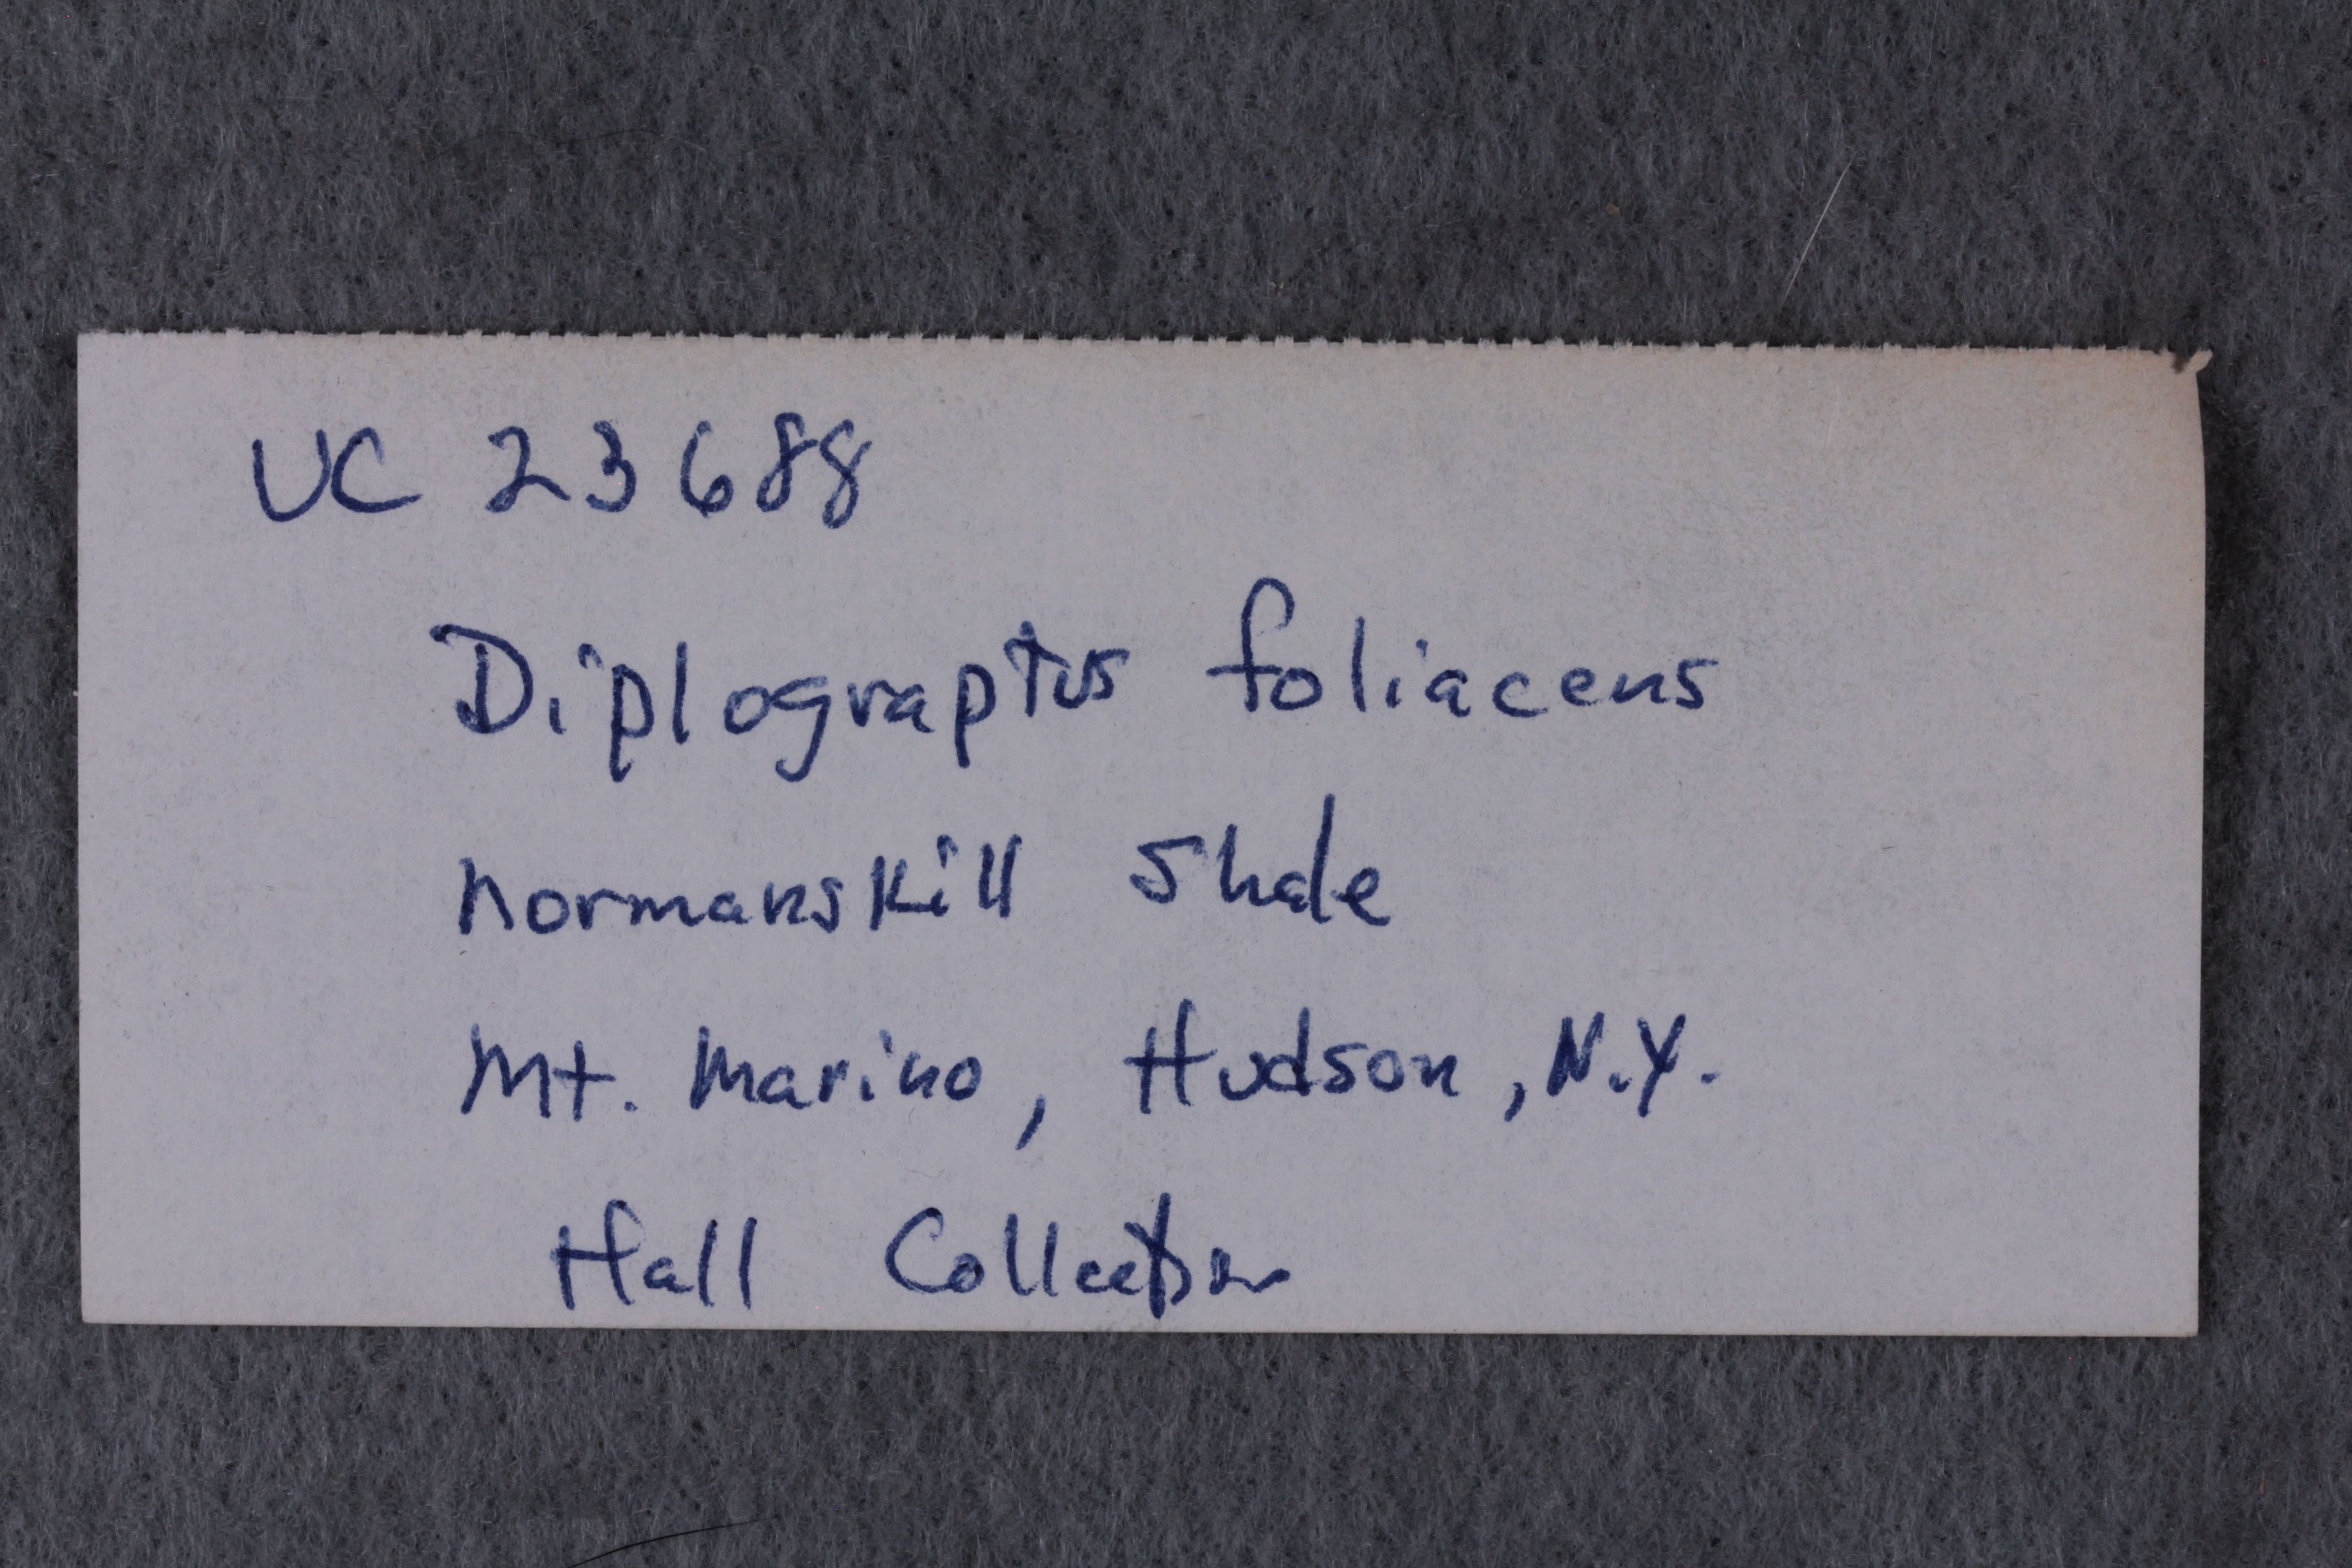 UC 23688
Diplograptus foliaceus
Normanskill Shale
Mt. Marino, Hudson, N.Y.
Hall Collection